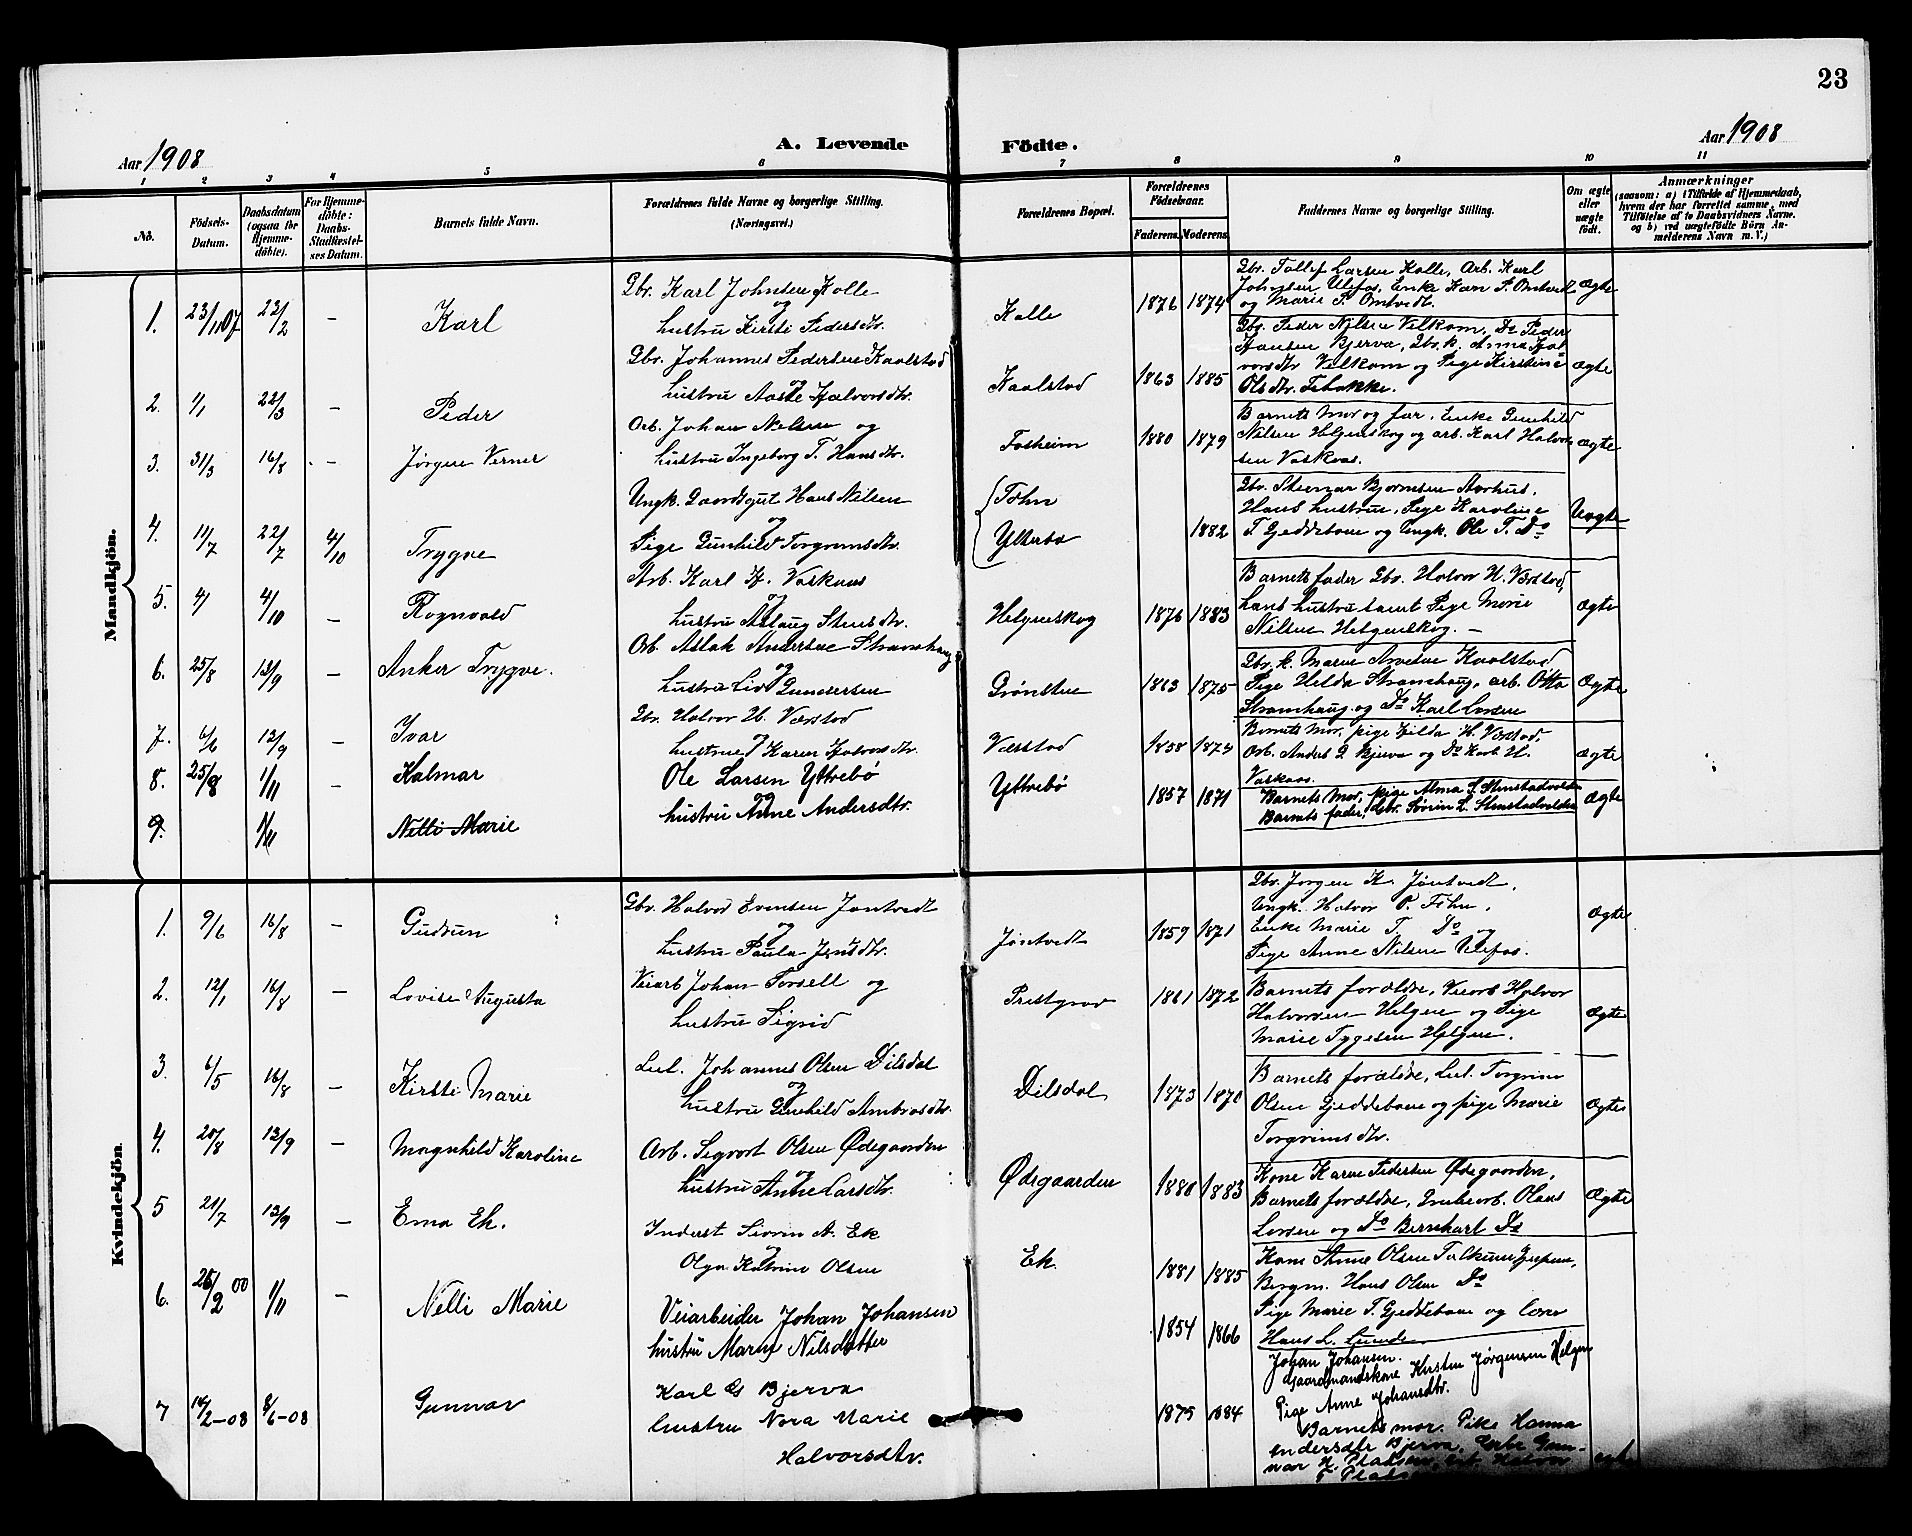 23
Aar 1908
A. Levende
Födte.
Aar 1908
1 2 3 4 5 6 7 8 9 10 11
No.
Födsels-Datum.
Daabsdatum (ogsaa for Hjemme-döbte).
For Hjemme-döbte: Daabs-Stadfæstel-ses Datum.
Barnets fulde Navn.
Forældrenes fulde Navne og borgerlige Stilling.
(Næringsvei.)
Forældrenes Bopæl.
Forældrenes Födselsaar.
Faderens. Moderens.
Faddernes Navne og borgerlige Stilling.
Om ægte eller uægte födt.
Anmærkninger
(saasom: a) i Tilfælde af Hjemmedaab, hvem der har forrettet samme, med Tilföielse af to Daabsvidners Navne. og b) ved uægtefödte Börn An-melderens Navn m. V.)
Mandkjön.
1. 23/11 07 23/2 – Karl
Gbr. Karl Johnsen Kolle
og
hustru Kirsti Pedersdtr.
Kolle 1876 1874
Gbr. Tollef Larsen Kolle, Arb. Karl
Johnsen, Ulefos, Enke Karen P. Omtvedt
og Marie P. Omtvedt.
Ægte
2. 1/1 22/3 – Peder
Gbr. Johannes Pedersen Kaalstad
og
hustru Aaste Halvorsdtr.
Kaalstad 1863 1885
Gbr. Peder Nilsen Vilkom, Do Peder
Hansen Bjerva, Gbr.k. Anna Hal
vorsdtr Vilkom og Pige Kirstine
Olsdtr.
Ægte
3. 31/3 16/8 – Jørgen Verner
Arb. Johan Nilsen og
hustru Ingeborg T. Hansdtr.
Fosheim 1880 1879
Barnets Mor og far, Enke Gunhild
Nilsen Helgenskog og arb. Karl Halvor
sen Vaskaas.
Ægte
4. 11/7 22/7 4/10 Trygve
Ungk. Gaardsgut Hans Nilsen
og
Pige Gunhild Torgrimsdtr.
Fæhn
Ytterbø
1882
Gbr. Steenar Bjørnsen Aarhus,
Hans hustru, Pige Karoline
T. Gjeddebone og Ungk. Ole T. Do
Uægte
5. 4/ 4/10 Rognvald
Arb. Karl H. Vaskaas
og
hustru Aslaug Stensdtr.
Helgenskog 1876 1883
Barnets fader Gbr. Halvor H. Værstad,
hans hustru samt Pige Marie
Nilsen Helgenskog. –
Ægte
6. 25/8 13/9 – Anker Trygve.
Arb. Aslak Andersen Stramhaug
og
hustru Liv Gundersen
Grønsten 1863 1875
Gbr. k. Maren Arvesen Kaalstad
Pige Helda Stramhaug, arb. Otto
Stramhaug og Do Karl Larsen
Ægte
7. 6/6 13/9 – Ivar
Gbr. Halvor H. Værstad
og
hustru Karen Halvorsdtr.
Værstad 1858 1874
Barnets Mor, pige Hilda H. Værstad,
Arb. Anders G. Bjerva og Do Karl H.
Vaskaas.
Ægte
8. 25/8 1/11 – Halmar
Ole Larsen Yttrebø
og
hustru Anne Andersdtr.
Yttrebø 1857 1871
Barnets Mor, pige Alma L. Stenstadvolden
Barnets fader, Gbr. Sørin L. Stenstadvolden
Ægte
9. 1/11 Nelli Marie
Kvindekjön.
1. 9/6 16/8 – Gudrun
Gbr. Halvor Evensen Jøntvedt
og
hustru Paula Jensdtr.
Jøntvedt 1859 1871
Gbr. Jørgen K. Jøntvedt,
Ungk. Halvor P. Fæhn,
Enke Marie T. Do og
Pige Anne Nilsen Ulefos.
Ægte
2. 12/1 16/8 – Lovise Augusta
Veiarb Johan Torsell og
hustru Sigrid
Prestgrav 1861 1872
Barnets forældre, Veiarb Halvor
Halvorsen Helgen og Pige
Marie Tygesen Helgen.
Ægte
3. 6/5 16/8 – Kirsti Marie
Lul. Johannes Olsen Dilsdal
og
hustru Gunhild Ambrosdtr.
Dilsdal 1873 1870
Barnets forældre, Lul. Torgrim
Olsen Gjeddebone og pige Marie
Torgrimsdtr.
Ægte
4. 20/8 13/9 – Magnhild Karoline
Arb. Segvart Olsen Ødegaarden
og
hustru Anne Larsdtr.
Ødegaarden 1880 1883
Kone Karen Pedersen Ødegaarden,
Barnets forældre, Grubearb. Olaus
Larsen og Do Bernhart Do
Ægte
5 21/7 13/9 – Erna Ek.
Inderst Sivrin A. Ek
og
Olga Katrine Olsen
Ek. 1881 1885
Kone Anne Olsen
Bergm. Hans Olsen Do
Pige Marie T. Gjeddebone og Lærer
Hans L. Lunde
6. 25/2 00 1/11 – Nelli Marie
Veiarbeider Johan Johansen
hustru Maren Nilsdatter
1854 1866
Johan Johansen.
Gaardmandskone Kirsten Jørgensen Helgen
Pige Anne Johansdtr.
7 14/2-08 8/6-08 Gunnar
Karl G Bjerva
hustru Nora Marie
Halvorsdtr.
1875 1884
Barnets mor. Pike Hanna
Andersdtr Bjerva, Gbr Gun-
nar H. Pladsen, Halvor
T. Plads
ægte